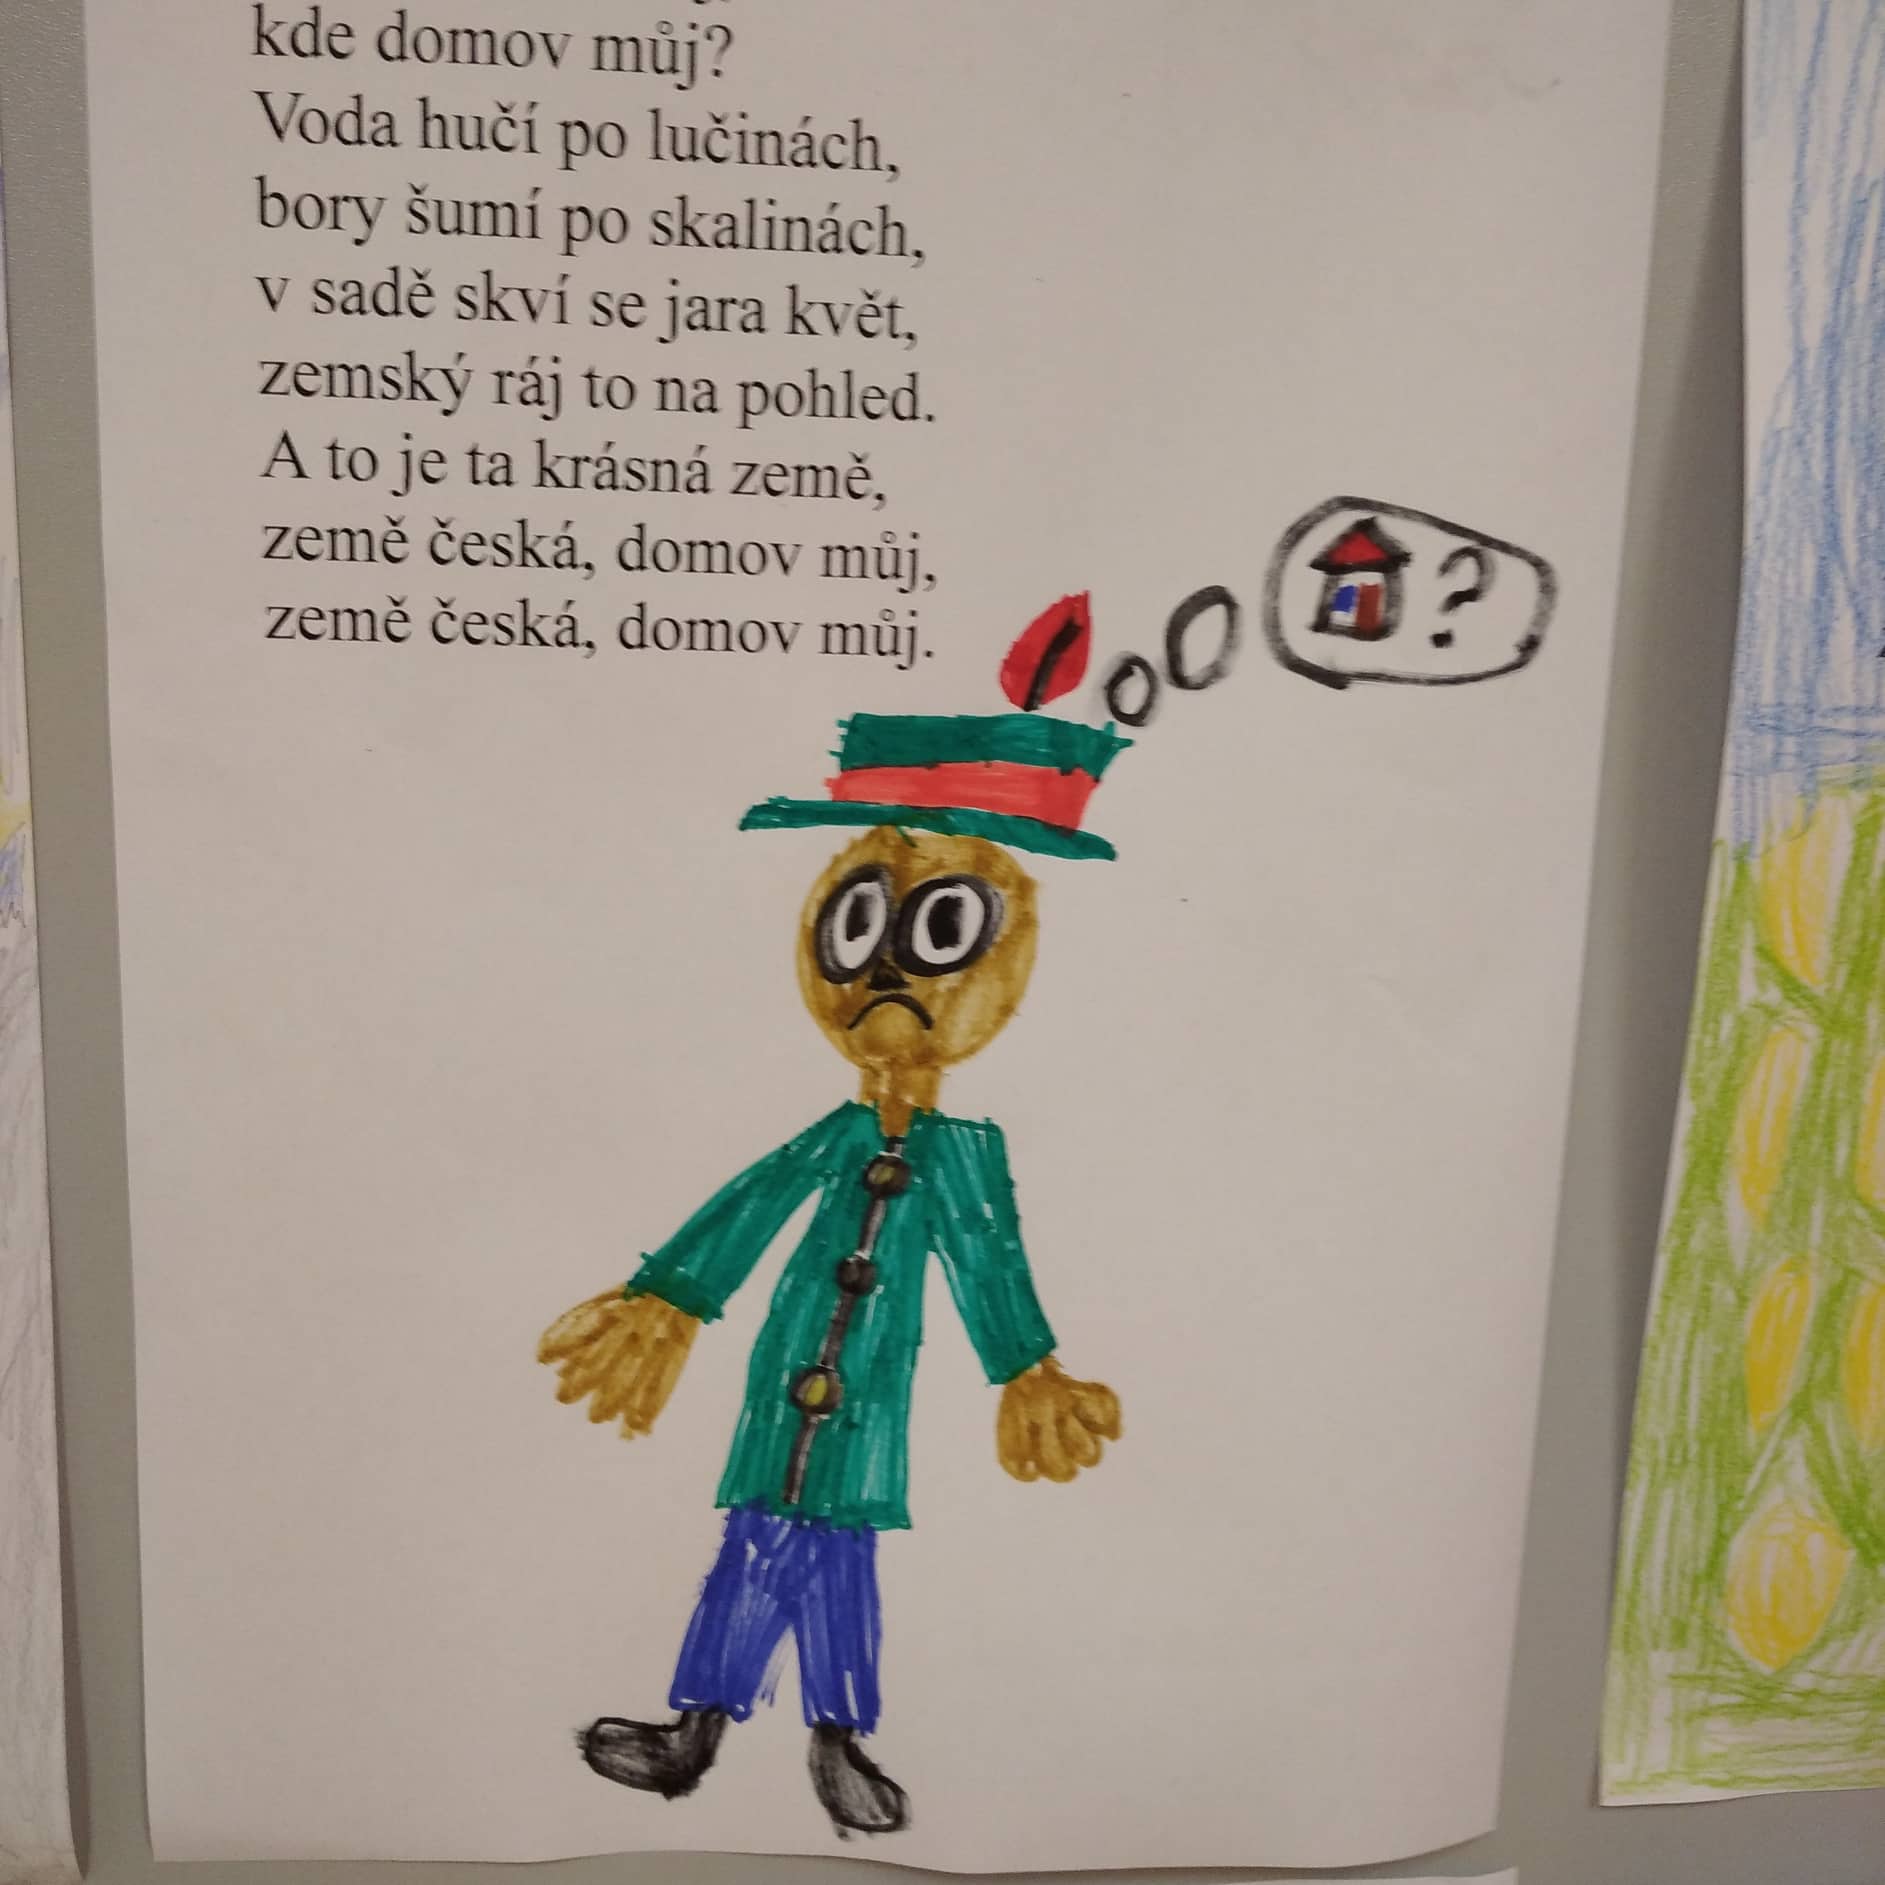 kde domov můj?
Voda hučí po lučinách,
bory šumí po skalinách,
v sadě skví se jara květ,
zemský ráj to na pohled.
A to je ta krásná země,
země česká, domov můj,
země česká, domov můj.
?